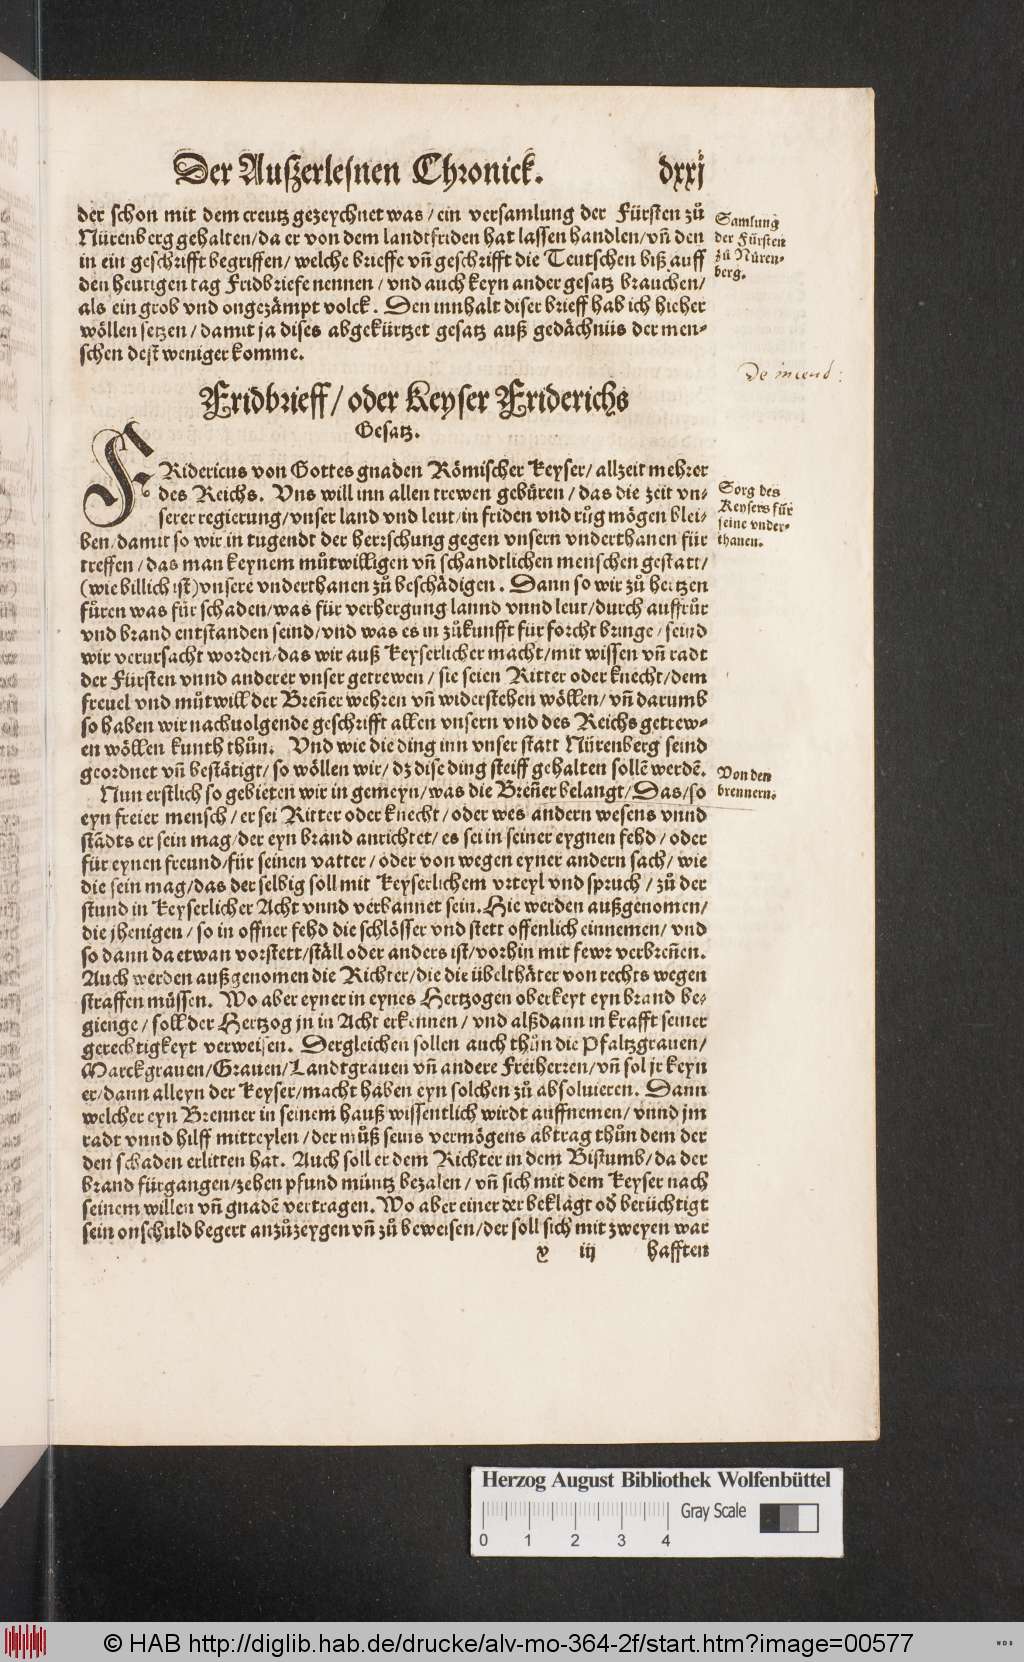 Der Außerlesnen Chronick. dxxj
der schon mit dem creutz gezeychnet was / ein versamlung der Fürsten zů
Nürenberg gehalten / da er von dem landtfriden hat lassen handlen / vñ den
in ein geschrifft begriffen / welche brieffe vñ geschrifft die Teutschen biß auff
den heutigen tag Fridbriefe nennen / vnd auch keyn ander gesatz brauchen /
als ein grob vnd ongezämpt volck. Den innhalt diser brieff hab ich hieher
wöllen setzen / damit ja dises abgekürtzet gesatz auß gedächnüs der men-
schen dest weniger komme.
Samlung
der Fürsten
zů Nüren-
berg.
Fridbrieff / oder Keyser Friderichs
Gesatz.
FRidericus von Gottes gnaden Römischer Keyser / allzeit mehrer
des Reichs. Vns will inn allen trewen gebüren / das die zeit vn-
serer regierung / vnser land vnd leut / in friden vnd růg mögen blei-
ben / damit so wir in tugendt der herrschung gegen vnsern vnderthanen für
treffen / das man keynem můtwilligen vñ schandtlichen menschen gestatt /
(wie billich ist) vnsere vnderthanen zů beschädigen. Dann so wir zů hertzen
fůren was für schaden / was für verhergung lannd vnnd leut / durch auffrůr
vnd brand entstanden seind / vnd was es in zůkunfft für forcht bringe / seind
wir verursacht worden / das wir auß Keyserlicher macht / mit wissen vñ radt
der Fürsten vnnd anderer vnser getrewen / sie seien Ritter oder knecht / dem
freuel vnd můtwill der Breñer wehren vñ widerstehen wöllen / vñ darumb
so haben wir nachuolgende geschrifft allen vnsern vnd des Reichs getrew-
en wöllen kunth thůn. Vnd wie die ding inn vnser statt Nürenberg seind
geordnet vñ bestätigt / so wöllen wir / dz dise ding steiff gehalten sollē werdē.
Sorg des
Keysers für
seine vnder-
thanen.
Nun erstlich so gebieten wir in gemeyn / was die Breñer belangt / Das / so
eyn freier mensch / er sei Ritter oder knecht / oder wes andern wesens vnnd
stādts er sein mag / der eyn brand anrichtet / es sei in seiner eygnen fehd / oder
für eynen freund / für seinen vatter / oder von wegen eyner andern sach / wie
die sein mag / das der selbig soll mit Keyserlichem vrteyl vnd spruch / zů der
stund in Keyserlicher Acht vnnd verbannet sein. Hie werden außgenomen /
die jhenigen / so in offner fehd die schlösser vnd stett offenlich einnemen / vnd
so dann da etwan vorstett / ställ oder anders ist / vorhin mit fewr verbreñen.
Auch werden außgenomen die Richter / die die übelthäter von rechts wegen
straffen müssen. Wo aber eyner in eynes Hertzogen oberkeyt eyn brand be-
gienge / soll der Hertzog jn in Acht erkennen / vnd alßdann in krafft seiner
gerechtigkeyt verweisen. Dergleichen sollen auch thůn die Pfaltzgrauen /
Marckgrauen / Grauen / Landtgrauen vñ andere Freiherren / vñ sol jr keyn
er / dann alleyn der Keyser / macht haben eyn solchen zů absoluieren. Dann
welcher eyn Brenner in seinem hauß wissentlich wirdt auffnemen / vnnd jm
radt vnnd hilff mitteylen / der můß seins vermögens abtrag thůn dem der
den schaden erlitten hat. Auch soll er dem Richter in dem Bistumb / da der
brand fürgangen / zehen pfund müntz bezalen / vñ sich mit dem Keyser nach
seinem willen vñ gnadē vertragen. Wo aber einer der beklagt od̄ berüchtigt
sein onschuld begert anzůzeygen vñ zů beweisen / der soll sich mit zweyen war
Von den
brennern.
x iij hafften
Herzog August Bibliothek Wolfenbüttel
Gray Scale
0 1 2 3 4
© HAB http://diglib.hab.de/drucke/alv-mo-364-2f/start.htm?image=00577